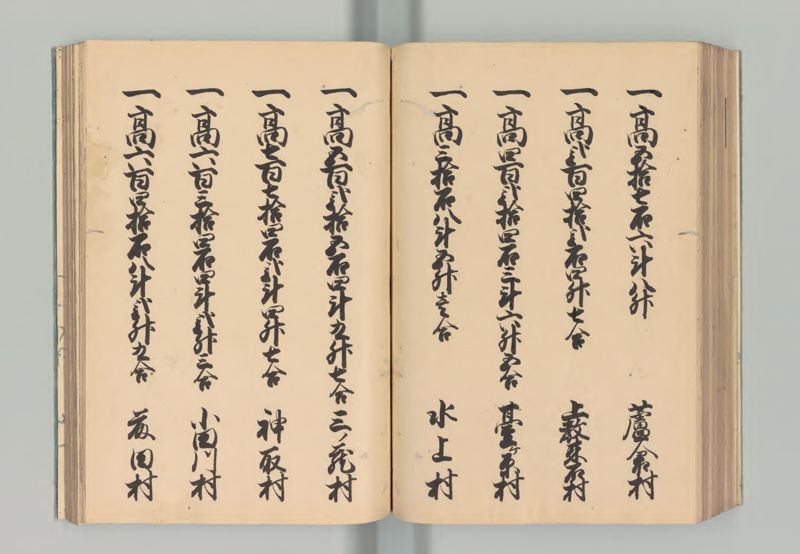 一高五拾七石六斗八升 蘆倉村
一高弐百四拾弐石四升七合 上教来石村
一高四百弐拾四石三斗六升五合 臺ヶ原村
一高三拾石八斗五升壱合 水上村
一高五百弐拾五石四斗九升七合 三ノ蔵村
一高七百七拾四石弐斗四升七合 神取村
一高六百三拾四石四斗弐升三合 小田川村
一高六百四拾石八斗弐升九合 藤田村